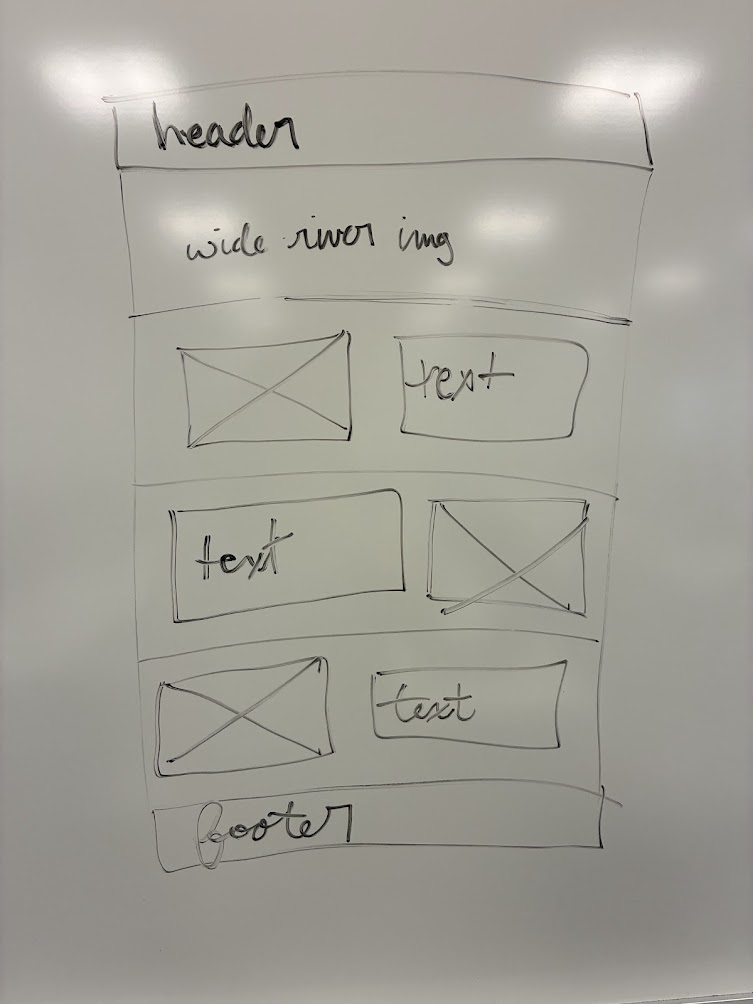 header
wide river img
text
text
text
footer